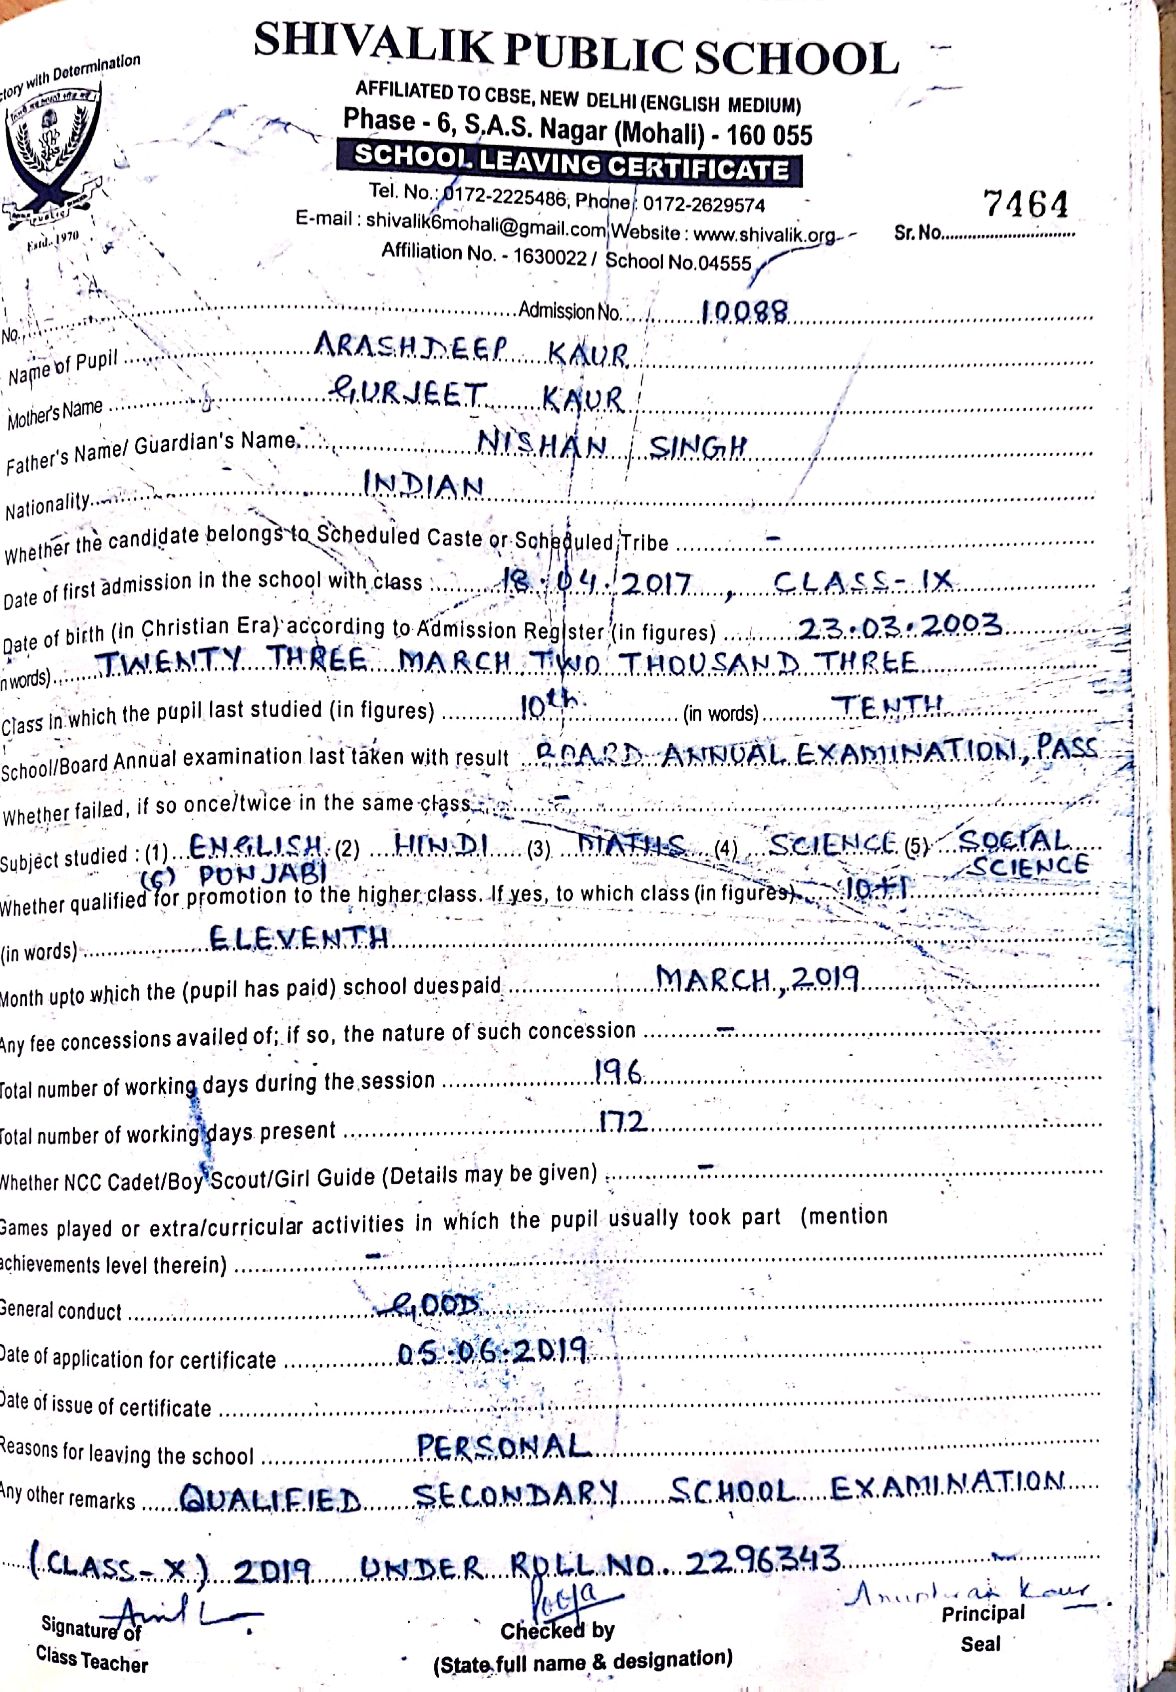 SHIVALIK PUBLIC SCHOOL
tory with Determination
AFFILIATED TO CBSE, NEW DELHI (ENGLISH MEDIUM)
Phase - 6, S.A.S. Nagar (Mohali) - 160 055
SCHOOL LEAVING CERTIFICATE
Tel. No.: 0172-2225486, Phone : 0172-2629574
E-mail : shivalik6mohali@gmail.com Website : www.shivalik.org
Affiliation No. - 1630022 / School No.04555
Estd. 1970
Sr. No. 7464
No. Admission No. 10088
Name of Pupil ARASHDEEP KAUR
Mother's Name GURJEET KAUR
Father's Name/ Guardian's Name NISHAN SINGH
Nationality INDIAN
Whether the candidate belongs to Scheduled Caste or Scheduled Tribe -
Date of first admission in the school with class 18.04.2017, CLASS-IX
Date of birth (in Christian Era) according to Admission Register (in figures) 23.03.2003
n words) TWENTY THREE MARCH TWO THOUSAND THREE
Class in which the pupil last studied (in figures) 10th (in words) TENTH
School/Board Annual examination last taken with result BOARD ANNUAL EXAMINATION, PASS
Whether failed, if so once/twice in the same class -
Subject studied : (1) ENGLISH (2) HINDI (3) MATHS (4) SCIENCE (5) SOCIAL SCIENCE
(6) PUNJABI
Whether qualified for promotion to the higher class. If yes, to which class (in figures) 10+1
(in words) ELEVENTH
Month upto which the (pupil has paid) school duespaid MARCH, 2019
Any fee concessions availed of; if so, the nature of such concession -
Total number of working days during the session 196
Total number of working days present 172
Whether NCC Cadet/Boy Scout/Girl Guide (Details may be given) -
Games played or extra/curricular activities in which the pupil usually took part (mention
achievements level therein) -
General conduct GOOD
Date of application for certificate 05.06.2019
Date of issue of certificate
Reasons for leaving the school PERSONAL
Any other remarks QUALIFIED SECONDARY SCHOOL EXAMINATION
(CLASS-X) 2019 UNDER ROLL NO. 2296343
Pooja
Kaur
Signature of Class Teacher
Checked by
(State full name & designation)
Principal
Seal